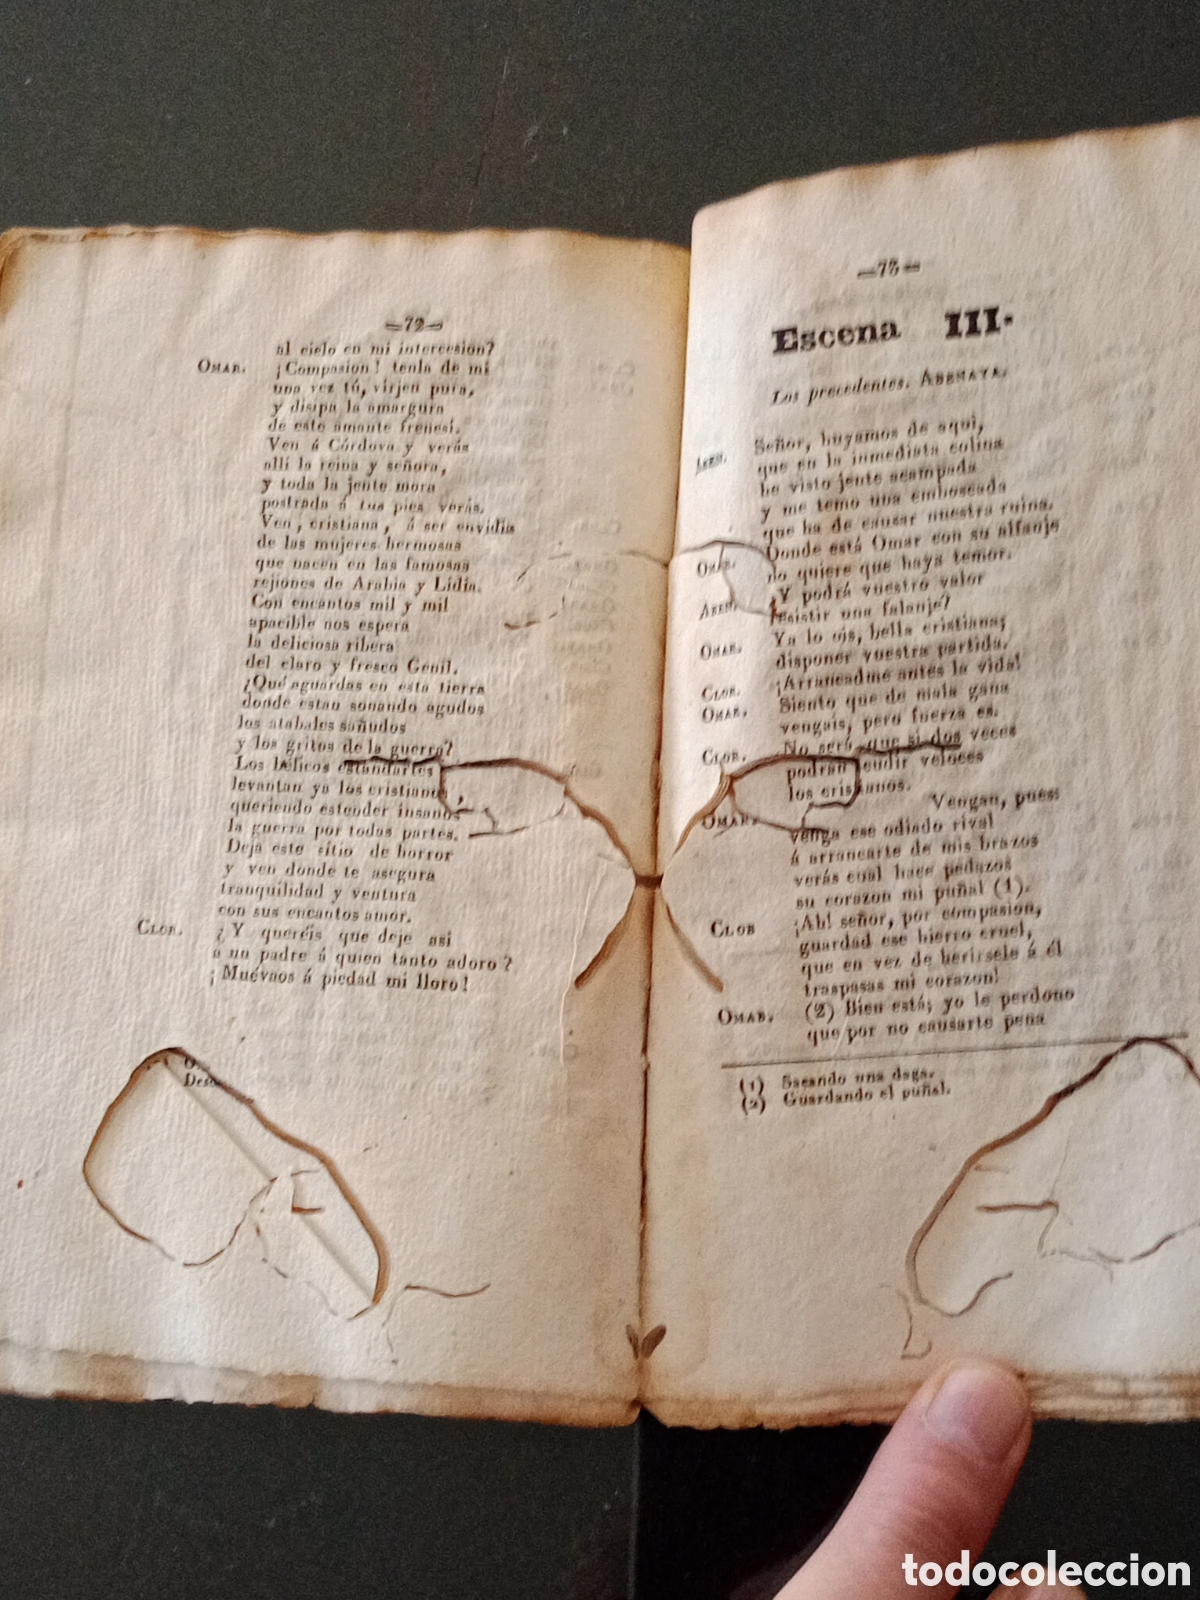 =72=
al cielo en mi intercesion?
OMAR. ¡Compasion! tenla de mí
una vez tú, vírjen pura,
y disipa la amargura
de este amante frenesí.
Ven á Córdova y verás
allí la reina y señora,
y toda la jente mora
postrada á tus pies verás.
Ven, cristiana, á ser envidia
de las mujeres hermosas
que nacen en las famosas
rejiones de Arabia y Lidia.
Con encantos mil y mil
apacible nos espera
la deliciosa ribera
del claro y fresco Genil.
¿Qué aguardas en esta tierra
donde estan sonando agudos
los atabales sañudos
y los gritos de la guerra?
Los bélicos estandartes
levantan ya los cristianos,
queriendo estender insanos
la guerra por todas partes.
Deja este sitio de horror
y ven donde te asegura
tranquilidad y ventura
con sus encantos amor.
CLOR. ¿Y queréis que deje asi
á un padre á quien tanto adoro?
¡Muévaos á piedad mi lloro!
=73=
Escena III.
Los precedentes. ABENAYA.
ABEN. Señor, huyamos de aqui,
que en la inmediata colina
he visto jente acampada
y me temo una emboscada
que ha de causar nuestra ruina.
OMAR. Donde está Omar con su alfanje
no quiere que haya temor.
ABEN. ¿Y podrá vuestro valor
resistir una falanje?
OMAR. Ya lo ois, bella cristiana;
disponer vuestra partida.
CLOR. ¡Arrancadme antes la vida!
OMAR. Siento que de mala gana
vengais, pero fuerza es.
CLOR. No será, que si dos veces
podrán acudir veloces
los cristianos.
OMAR. Vengan, pues:
venga ese odiado rival
á arrancarte de mis brazos
verás cual hace pedazos
su corazon mi puñal (1).
CLOR ¡Ah! señor, por compasion,
guardad ese hierro cruel,
que en vez de herírsele á él
traspasas mi corazon!
OMAR. (2) Bien está; yo le perdono
que por no causarte pena
(1) Sacando una daga.
(2) Guardando el puñal.
todocoleccion